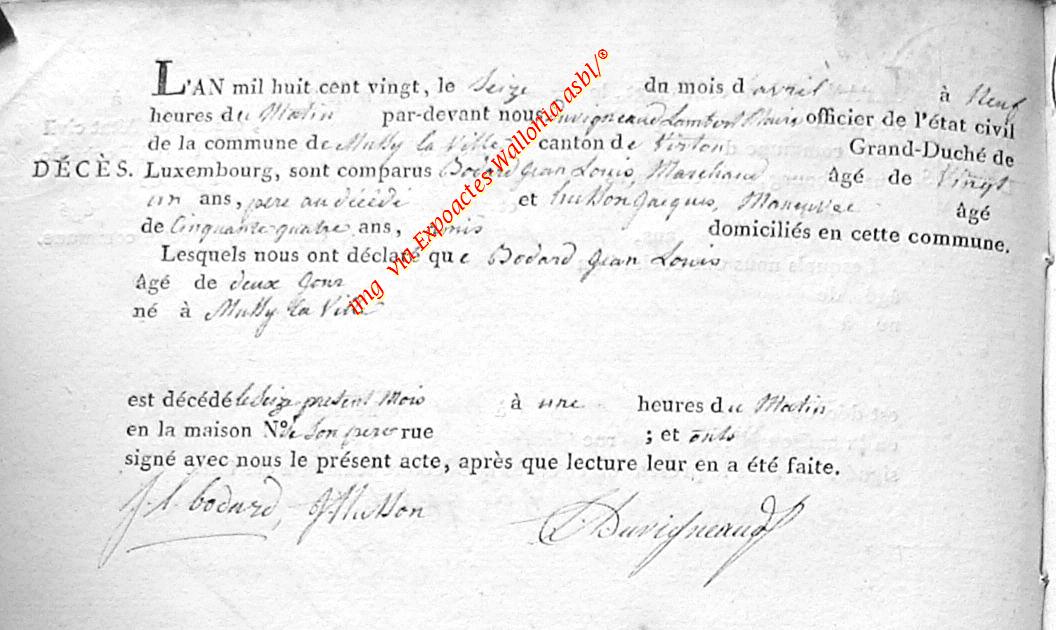 L'AN mil huit cent vingt, le Seize du mois d'avril à Neuf
heures du Matin par-devant nous Duvigneaud Lambert Maire officier de l'état civil
de la commune de Mussy la Ville canton de Virton Grand-Duché de
DÉCÈS. Luxembourg, sont comparus Bodard Jean Louis, Marchand âgé de Vingt
un ans, pere au décédé et husson Jacques, Maneuvre âgé
de Cinquante quatre ans, amis domiciliés en cette commune.
Lesquels nous ont déclaré que Bodard Jean Louis
âgé de deux Jour
né à Mussy La Ville
est décédé le Seize present Mois à une heures du Matin
en la maison N° de Son pere rue ; et onts
signé avec nous le présent acte, après que lecture leur en a été faite.
J. L. bodard, J Husson Duvigneaud
img via Expoactes Wallonia asbl/®